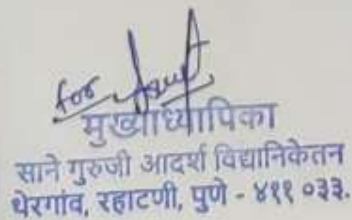 for
मुख्याध्यापिका
साने गुरुजी आदर्श विद्यानिकेतन
थेरगांव, रहाटणी, पुणे - ४११ ०३३.